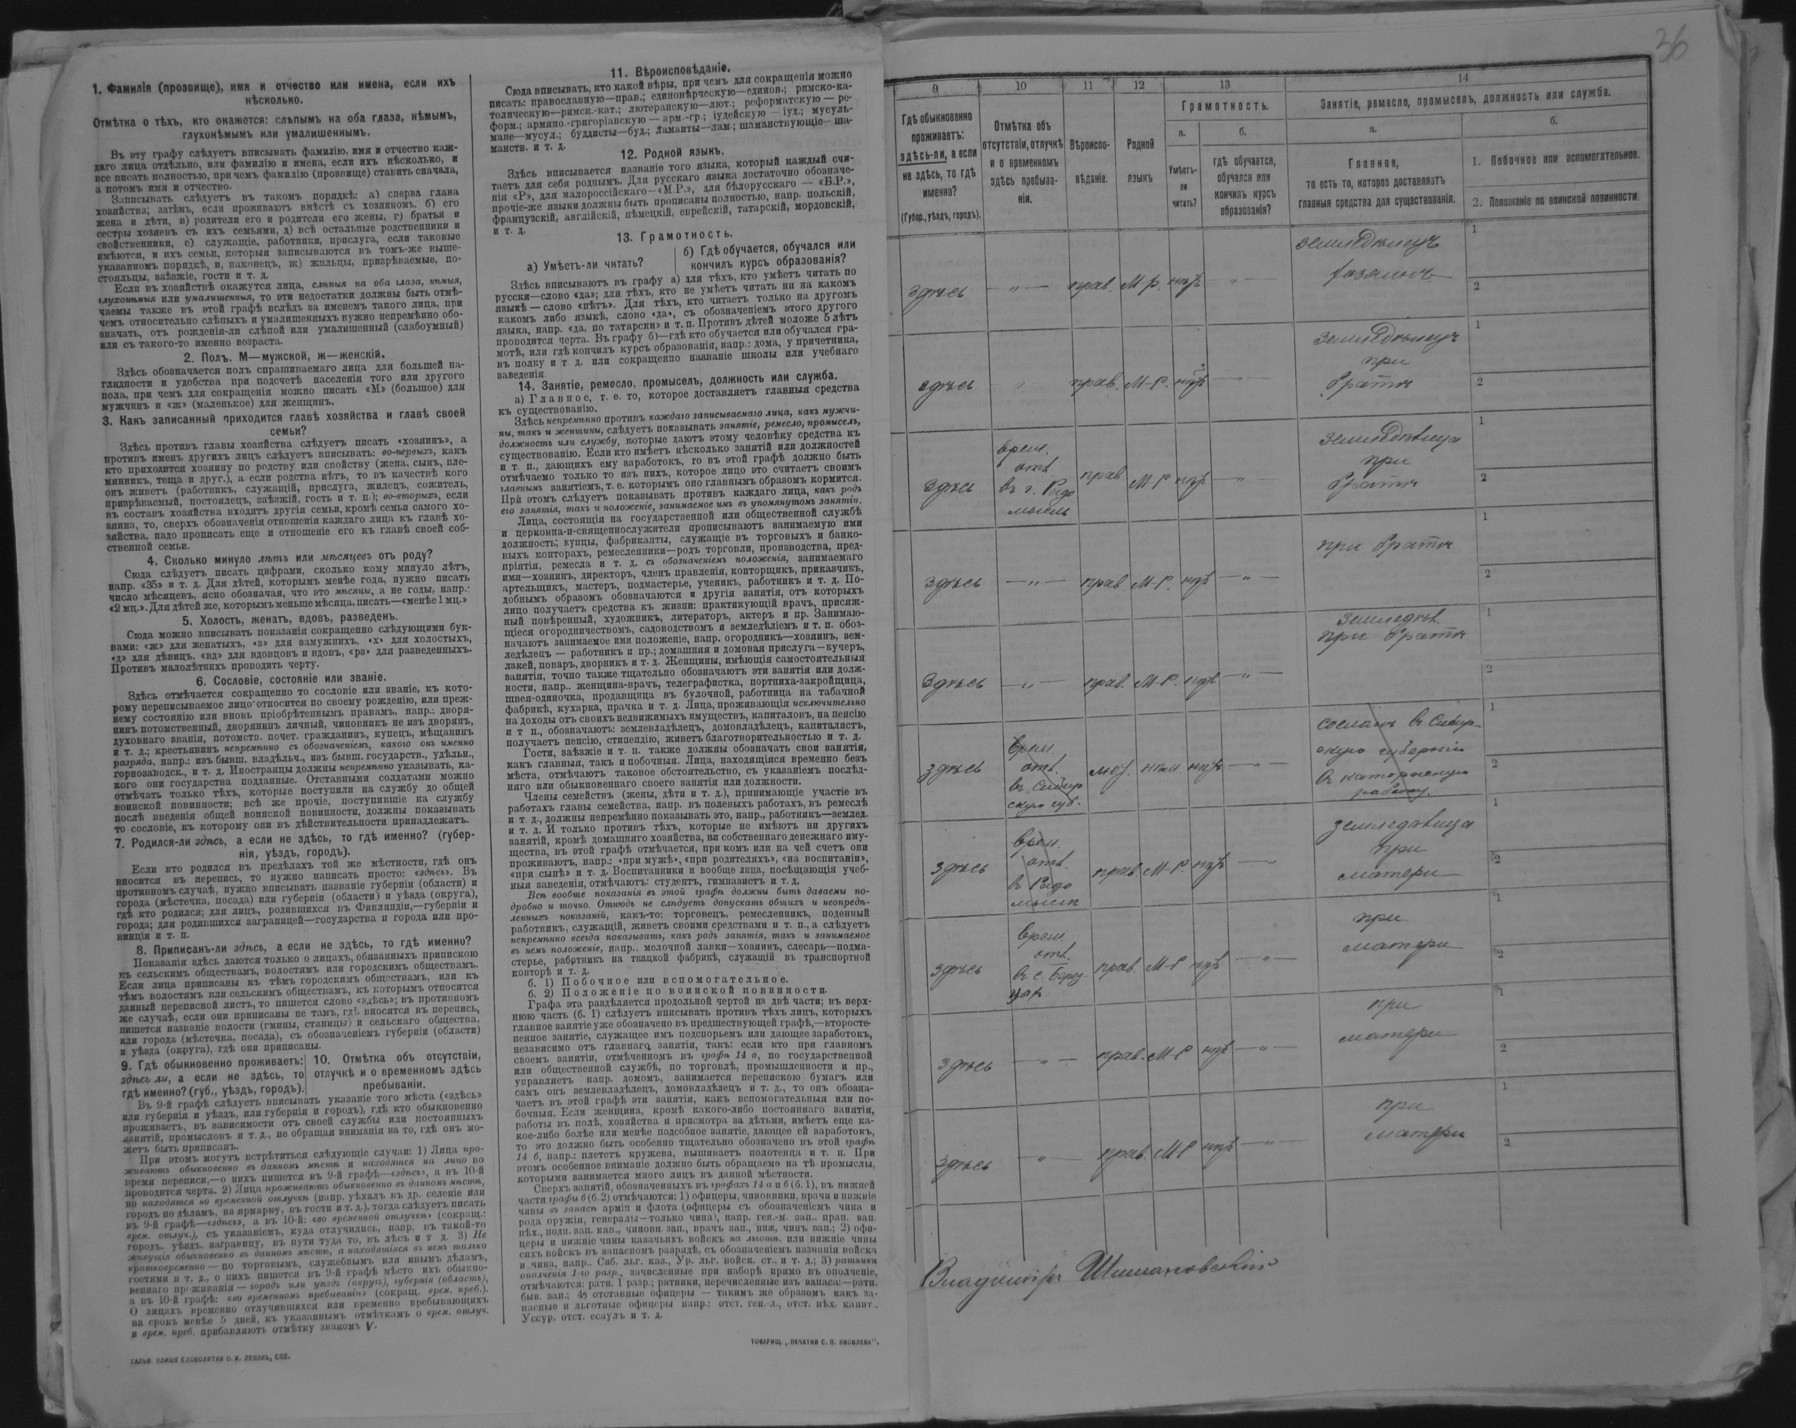 1. Фамилія (прозвище), имя и отчество или имена, если ихъ
нѣсколько.
Отмѣтка о тѣхъ, кто окажется: слѣпымъ на оба глаза, нѣмымъ,
глухонѣмымъ или умалишеннымъ.
Въ эту графу слѣдуетъ вписывать фамилію, имя и отчество каж-
даго лица отдѣльно, или фамилію и имена, если ихъ нѣсколько, и
все писать полностью, при чемъ фамилію (прозвище) ставить сначала,
а потомъ имя и отчество.
Записывать слѣдуетъ въ такомъ порядкѣ: а) сперва глава
хозяйства; затѣмъ, если проживаютъ вмѣстѣ съ хозяиномъ, б) его
жена и дѣти, в) родители его и родители его жены, г) братья и
сестры хозяевъ съ ихъ семьями, д) всѣ остальные родственники и
свойственники, е) служащіе, работники, прислуга, если таковые
имѣются, и ихъ семьи, которыя записываются въ томъ-же выше-
указанномъ порядкѣ, и, наконецъ, ж) жильцы, призрѣваемые, по-
стояльцы, заѣзжіе, гости и т. д.
Если въ хозяйствѣ окажутся лица, слѣпыя на оба глаза, нѣмыя,
глухонѣмыя или умалишенныя, то эти недостатки должны быть отмѣ-
чаемы также въ этой графѣ вслѣдъ за именемъ такого лица, при
чемъ относительно слѣпыхъ и умалишенныхъ нужно непремѣнно обо-
значать, отъ рожденія-ли слѣпой или умалишенный (слабоумный)
или съ такого-то именно возраста.
2. Полъ. М—мужской, ж—женскій.
Здѣсь обозначается полъ спрашиваемаго лица для большей на-
глядности и удобства при подсчетѣ населенія того или другого
пола, при чемъ для сокращенія можно писать «М» (большое) для
мужчинъ и «ж» (маленькое) для женщинъ.
3. Какъ записанный приходится главѣ хозяйства и главѣ своей
семьи?
Здѣсь противъ главы хозяйства слѣдуетъ писать «хозяинъ», а
противъ именъ другихъ лицъ слѣдуетъ вписывать: во-первыхъ, какъ
кто приходится хозяину по родству или свойству (жена, сынъ, пле-
мянникъ, теща и друг.), а если родства нѣтъ, то въ качествѣ кого
онъ живетъ (работникъ, служащій, прислуга, жилецъ, сожитель,
призрѣваемый, постоялецъ, заѣзжій, гость и т. п.); во-вторыхъ, если
въ составъ хозяйства входятъ другія семьи, кромѣ семьи самого хо-
зяина, то, сверхъ обозначенія отношенія каждаго лица къ главѣ хо-
зяйства, надо прописать еще и отношеніе его къ главѣ своей соб-
ственной семьи.
4. Сколько минуло лѣтъ или мѣсяцевъ отъ роду?
Сюда слѣдуетъ писать цифрами, сколько кому минуло лѣтъ,
напр. «35» и т. д. Для дѣтей, которымъ менѣе года, нужно писать
число мѣсяцевъ, ясно обозначая, что это мѣсяцы, а не годы, напр.:
«2 мц.». Для дѣтей же, которымъ меньше мѣсяца, писать—«менѣе 1 мц.»
5. Холостъ, женатъ, вдовъ, разведенъ.
Сюда можно вписывать показанія сокращенно слѣдующими бук-
вами: «ж» для женатыхъ, «з» для замужнихъ, «х» для холостыхъ,
«д» для дѣвицъ, «вд» для вдовцовъ и вдовъ, «рз» для разведенныхъ.
Противъ малолѣтнихъ проводить черту.
6. Сословіе, состояніе или званіе.
Здѣсь отмѣчается сокращенно то сословіе или званіе, къ кото-
рому переписываемое лицо относится по своему рожденію, или преж-
нему состоянію или вновь пріобрѣтеннымъ правамъ, напр.: дворя-
нинъ потомственный, дворянинъ личный, чиновникъ не изъ дворянъ,
духовнаго званія, потомств. почет. гражданинъ, купецъ, мѣщанинъ
и т. д.; крестьянинъ непремѣнно съ обозначеніемъ, какого онъ именно
разряда, напр.: изъ бывш. владѣльч., изъ бывш. государств., удѣльн.,
горнозаводск., и т. д. Иностранцы должны непремѣнно указывать, ка-
кого они государства подданные. Отставными солдатами можно
отмѣчать только тѣхъ, которые поступили на службу до общей
воинской повинности; всѣ же прочіе, поступившіе на службу
послѣ введенія общей воинской повинности, должны показывать
то сословіе, къ которому они въ дѣйствительности принадлежатъ.
7. Родился-ли здѣсь, а если не здѣсь, то гдѣ именно? (губер-
нія, уѣздъ, городъ).
Если кто родился въ предѣлахъ той же мѣстности, гдѣ онъ
вносится въ перепись, то нужно написать просто: «здѣсь». Въ
противномъ случаѣ, нужно вписывать названіе губерніи (области) и
города (мѣстечка, посада) или губерніи (области) и уѣзда (округа),
гдѣ кто родился; для лицъ, родившихся въ Финляндіи,—губерніи и
города; для родившихся заграницей—государства и города или про-
винціи и т. п.
8. Приписанъ-ли здѣсь, а если не здѣсь, то гдѣ именно?
Показанія здѣсь даются только о лицахъ, обязанныхъ припискою
къ сельскимъ обществамъ, волостямъ или городскимъ обществамъ.
Если лица приписаны къ тѣмъ городскимъ обществамъ, или къ
тѣмъ волостямъ или сельскимъ обществамъ, къ которымъ относится
данный переписной листъ, то пишется слово «здѣсь»; въ противномъ
же случаѣ, если они приписаны не тамъ, гдѣ вносятся въ перепись,
пишется названіе волости (гмины, станицы) и сельскаго общества,
или города (мѣстечка, посада), съ обозначеніемъ губерніи (области)
и уѣзда (округа), гдѣ они приписаны.
9. Гдѣ обыкновенно проживаетъ:
здѣсь ли, а если не здѣсь, то
гдѣ именно? (губ., уѣздъ, городъ).
10. Отмѣтка объ отсутствіи,
отлучкѣ и о временномъ здѣсь
пребываніи.
Въ 9-й графѣ слѣдуетъ вписывать указаніе того мѣста («здѣсь»
или губернія и уѣздъ, или губернія и городъ), гдѣ кто обыкновенно
проживаетъ, въ зависимости отъ своей службы или постоянныхъ
занятій, промысловъ и т. д., не обращая вниманія на то, гдѣ онъ мо-
жетъ быть приписанъ.
При этомъ могутъ встрѣтиться слѣдующіе случаи: 1) Лица про-
живаютъ обыкновенно въ данномъ мѣстѣ и находятся на лицо во
время переписи,—о нихъ пишется въ 9-й графѣ—«здѣсь», а въ 10-й
проводится черта. 2) Лица проживаютъ обыкновенно въ данномъ мѣстѣ,
но находятся во временной отлучкѣ (напр. уѣхалъ въ др. селеніе или
городъ по дѣламъ, на ярмарку, въ гости и т. д.), тогда слѣдуетъ писать
въ 9-й графѣ—«здѣсь», а въ 10-й: «во временной отлучкѣ» (сокращ.:
врем. отлуч.), съ указаніемъ, куда отлучились, напр. въ такой-то
городъ, уѣздъ, заграницу, въ пути туда то, въ лѣсъ и т д. 3) Не
живущія обыкновенно въ данномъ мѣстѣ, а находящіяся въ немъ только
кратковременно — по торговымъ, служебнымъ или инымъ дѣламъ,
гостями и т. д., о нихъ пишется въ 9-й графѣ мѣсто ихъ обыкно-
веннаго проживанія — городъ или уѣздъ (округъ), губернія (область),
а въ 10-й графѣ: «во временномъ пребываніи» (сокращ. врем. преб.).
О лицахъ временно отлучившихся или временно пребывающихъ
на срокъ менѣе 5 дней, къ указаннымъ отмѣткамъ о врем. отлуч.
и врем. преб. прибавляютъ отмѣтку знакомъ V.
11. Вѣроисповѣданіе.
Сюда вписывать, кто какой вѣры, при чемъ для сокращенія можно
писать: православную—прав.; единовѣрческую—единов.; римско-ка-
толическую—римск.-кат.; лютеранскую—лют.; реформатскую — ре-
форм.; армяно-григоріанскую — арм.-гр.; іудейскую — іуд.; мусуль-
мане—мусул.; буддисты—буд.; ламаиты—лам.; шаманствующіе—ша-
манств. и т. д.
12. Родной языкъ.
Здѣсь вписывается названіе того языка, который каждый счи-
таетъ для себя роднымъ. Для русскаго языка достаточно обозначе-
нія «Р», для малороссійскаго—«М.Р.», для бѣлорусскаго — «Б.Р.»,
прочіе-же языки должны быть прописаны полностью, напр. польскій,
французскій, англійскій, нѣмецкій, еврейскій, татарскій, мордовскій,
и т. д.
13. Грамотность.
а) Умѣетъ-ли читать?
б) Гдѣ обучается, обучался или
кончилъ курсъ образованія?
Здѣсь вписываютъ въ графу а) для тѣхъ, кто умѣетъ читать по
русски—слово «да»; для тѣхъ, кто не умѣетъ читать ни на какомъ
языкѣ — слово «нѣтъ». Для тѣхъ, кто читаетъ только на другомъ
какомъ либо языкѣ, слово «да», съ обозначеніемъ этого другого
языка, напр. «да, по татарски» и т. п. Противъ дѣтей моложе 5 лѣтъ
проводится черта. Въ графу б)—гдѣ кто обучается или обучался гра-
мотѣ, или гдѣ кончилъ курсъ образованія, напр.: дома, у причетника,
въ полку и т. д. или сокращенно названіе школы или учебнаго
заведенія
14. Занятіе, ремесло, промыселъ, должность или служба.
а) Главное, т. е. то, которое доставляетъ главныя средства
къ существованію.
Здѣсь непремѣнно противъ каждаго записываемаго лица, какъ мужчи-
ны, такъ и женщины, слѣдуетъ показывать занятіе, ремесло, промыселъ,
должность или службу, которые даютъ этому человѣку средства къ
существованію. Если кто имѣетъ нѣсколько занятій или должностей
и т. п., дающихъ ему заработокъ, то въ этой графѣ должно быть
отмѣчаемо только то изъ нихъ, которое лицо это считаетъ своимъ
главнымъ занятіемъ, т. е. которымъ оно главнымъ образомъ кормится.
При этомъ слѣдуетъ показывать противъ каждаго лица, какъ родъ
его занятія, такъ и положеніе, занимаемое имъ въ упомянутомъ занятіи.
Лица, состоящія на государственной или общественной службѣ
и церковно-и-священнослужители прописываютъ занимаемую ими
должность; купцы, фабриканты, служащіе въ торговыхъ и банко-
выхъ конторахъ, ремесленники—родъ торговли, производства, пред-
пріятія, ремесла и т. д. съ обозначеніемъ положенія, занимаемаго
ими—хозяинъ, директоръ, членъ правленія, конторщикъ, приказчикъ,
артельщикъ, мастеръ, подмастерье, ученикъ, работникъ и т. д. По-
добнымъ образомъ обозначаются и другія занятія, отъ которыхъ
лицо получаетъ средства къ жизни: практикующій врачъ, присяж-
ный повѣренный, художникъ, литераторъ, актеръ и пр. Занимаю-
щіеся огородничествомъ, садоводствомъ и земледѣліемъ и т. п. обоз-
начаютъ занимаемое ими положеніе, напр. огородникъ—хозяинъ, зем-
ледѣлецъ — работникъ и пр.; домашняя и домовая прислуга—кучеръ,
лакей, поваръ, дворникъ и т. д. Женщины, имѣющія самостоятельныя
занятія, точно также тщательно обозначаютъ эти занятія или долж-
ности, напр. женщина-врачъ, телеграфистка, портниха-закройщица,
швея-одиночка, продавщица въ булочной, работница на табачной
фабрикѣ, кухарка, прачка и т. д. Лица, проживающія исключительно
на доходы отъ своихъ недвижимыхъ имуществъ, капиталовъ, на пенсію
и т п., обозначаютъ: землевладѣлецъ, домовладѣлецъ, капиталистъ,
получаетъ пенсію, стипендію, живетъ благотворительностью и т. д.
Гости, заѣзжіе и т. п. также должны обозначать свои занятія,
какъ главныя, такъ и побочныя. Лица, находящіяся временно безъ
мѣста, отмѣчаютъ таковое обстоятельство, съ указаніемъ послѣд-
няго или обыкновеннаго своего занятія или должности.
Члены семействъ (жены, дѣти и т. д.), принимающіе участіе въ
работахъ главы семейства, напр. въ полевыхъ работахъ, въ ремеслѣ
и т. д., должны непремѣнно показывать это, напр., работникъ—землед.
и т. д. И только противъ тѣхъ, которые не имѣютъ ни другихъ
занятій, кромѣ домашняго хозяйства, ни собственнаго денежнаго иму-
щества, въ этой графѣ отмѣчается, при комъ или на чей счетъ они
проживаютъ, напр.: «при мужѣ», «при родителяхъ», «на воспитаніи»,
«при сынѣ» и т. д. Воспитанники и вообще лица, посѣщающія учеб-
ныя заведенія, отмѣчаютъ: студентъ, гимназистъ и т. д.
Всѣ вообще показанія въ этой графѣ должны быть даваемы по-
дробно и точно. Отнюдь не слѣдуетъ допускать общихъ и неопредѣ-
ленныхъ показаній, какъ-то: торговецъ, ремесленникъ, поденный
работникъ, служащій, живетъ своими средствами и т. п., а слѣдуетъ
непремѣнно всегда показывать, какъ родъ занятія, такъ и занимаемое
въ немъ положеніе, напр.. мелочной лавки—хозяинъ, слесарь—подма-
стерье, работникъ на ткацкой фабрикѣ, служащій въ транспортной
конторѣ и т. д.
б. 1) Побочное или вспомогательное.
б. 2) Положеніе по воинской повинности.
Графа эта раздѣляется продольной чертой на двѣ части; въ верх-
нюю часть (б. 1) слѣдуетъ вписывать противъ тѣхъ лицъ, которыхъ
главное занятіе уже обозначено въ предшествующей графѣ,—второсте-
пенное занятіе, служащее имъ подспорьемъ или дающее заработокъ,
независимо отъ главнаго занятія, такъ: если кто при главномъ
своемъ занятіи, отмѣченномъ въ графѣ 14 а, по государственной
или общественной службѣ, по торговлѣ, промышленности и пр.,
управляетъ напр. домомъ, занимается перепискою бумагъ или
самъ онъ землевладѣлецъ, домовладѣлецъ и т. д., то онъ обозна-
чаетъ въ этой графѣ эти занятія, какъ вспомогательныя или по-
бочныя. Если женщина, кромѣ какого-либо постояннаго занятія,
работы въ полѣ, хозяйства и присмотра за дѣтьми, имѣетъ еще ка-
кое-либо болѣе или менѣе подсобное занятіе, дающее ей заработокъ,
то это должно быть особенно тщательно обозначено въ этой графѣ
14 б, напр.: плететъ кружева, вышиваетъ полотенца и т. п. При
этомъ особенное вниманіе должно быть обращаемо на тѣ промыслы,
которыми занимается много лицъ въ данной мѣстности.
Сверхъ занятій, обозначенныхъ въ графахъ 14 а и б (б. 1), въ нижней
части графы б (б. 2) отмѣчаются: 1) офицеры, чиновники, врачи и нижніе
чины въ запасѣ арміи и флота (офицеры съ обозначеніемъ чина и
рода оружія, генералы—только чина), напр. ген.-м. зап., прап. зап.
пѣх., подп. зап. кав., чиновн. зап., врачъ зап., ниж. чинъ зап.; 2) офи-
церы и нижніе чины казачьихъ войскъ на льготѣ, или нижніе чины
сихъ войскъ въ запасномъ разрядѣ, съ обозначеніемъ названія войска
и чина, напр.. Сиб. льг. каз., Ур. льг. войск. ст., и т. д.; 3) ратники
ополченія 1-го разр., зачисленные при наборѣ прямо въ ополченіе,
отмѣчаются: ратн. 1 разр.; ратники, перечисленные изъ запаса:—ратн.
быв. зап.; 4) отставные офицеры — такимъ же образомъ какъ за-
пасные и льготные офицеры напр.: отст. ген.-л., отст. пѣх. капит.,
Уссур. отст. есаулъ и т. д.
ТОВАРИЩ. „ПЕЧАТНЯ С. П. ЯКОВЛЕВА".
36
9
10
11
12
13
14
Гдѣ обыкновенно
проживаетъ:
здѣсь-ли, а если
не здѣсь, то гдѣ
именно?
(Губер., уѣздъ, городъ).
Отмѣтка объ
отсутствіи, отлучкѣ
и о временномъ
здѣсь пребыва-
ніи.
Вѣроиспо-
вѣданіе.
Родной
языкъ
Грамотность.
а.
Умѣетъ-
ли
читать?
б.
гдѣ обучается,
обучался или
кончилъ курсъ
образованія?
Занятіе, ремесло, промыселъ, должность или служба.
а.
Главное,
то есть то, которое доставляетъ
главныя средства для существованія.
б.
1. Побочное или вспомогательное.
2. Положеніе по воинской повинности
здѣсь — „ — прав. М-р. нѣтъ „
1
2
здѣсь „ прав. М-Р. нѣтъ — при братѣ
1
2
здѣсь врем. от. въ г. Радо мысль прав М-Р нѣтъ — „ при братѣ
1
2
здѣсь — „ — прав М-Р. нѣтъ — „ — при братѣ
1
2
здѣсь — „ — прав. М-Р. нѣтъ — „ — земледѣл. при братѣ
1
2
здѣсь врем. от. нѣтъ — „ — сосланъ въ
1
2
здѣсь врем. от. въ Радо мыслѣ прав. М-Р. нѣтъ — при матери
1
2
здѣсь врем от. въ с. прав. М-Р нѣтъ — „ — при матери
1
2
здѣсь — „ — прав. М-Р нѣтъ — „ — при матери
1
2
здѣсь — „ — прав. М-Р нѣтъ — „ — при матери
1
2
Владиміръ